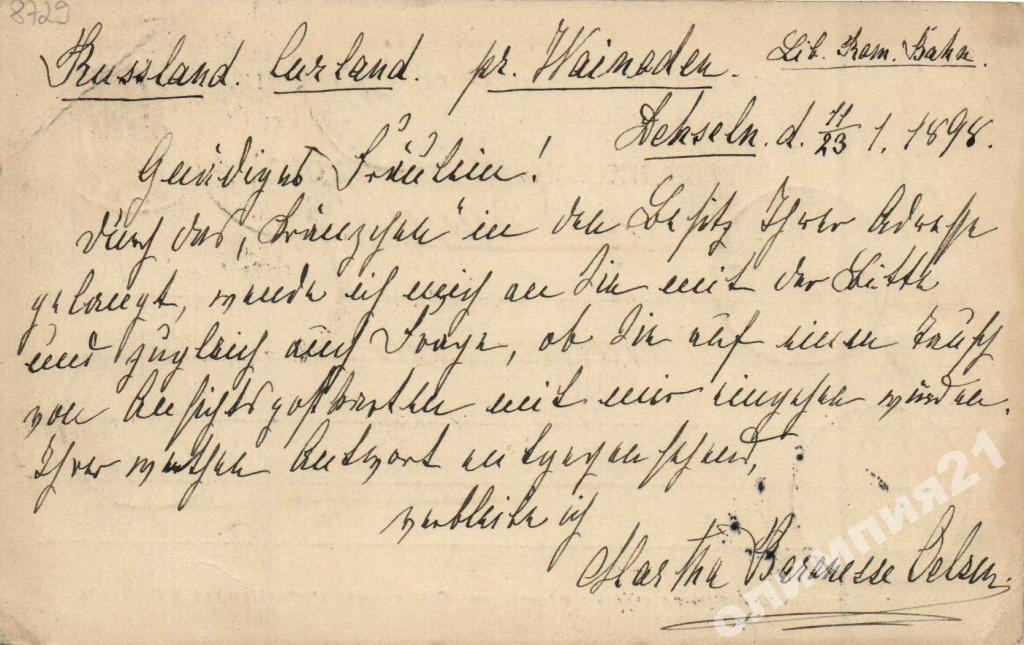 8729
Russland. Curland. pr. Wainoden. Lib. Rom. Bahn.
Dehseln. d. 11/23 1. 1898.
Gnädiges Fräulein!
Durch das „Kränzchen“ in den Besitz Ihrer Adresse
gelangt, wende ich mich an Sie mit der Bitte
und zugleich auch Frage, ob Sie auf einen Tausch
von Ansichtspostkarten mit mir eingehen würden.
Ihrer werthen Antwort entgegensehend,
verbleibe ich
Martha Baronesse Oelsen.
олимпия21